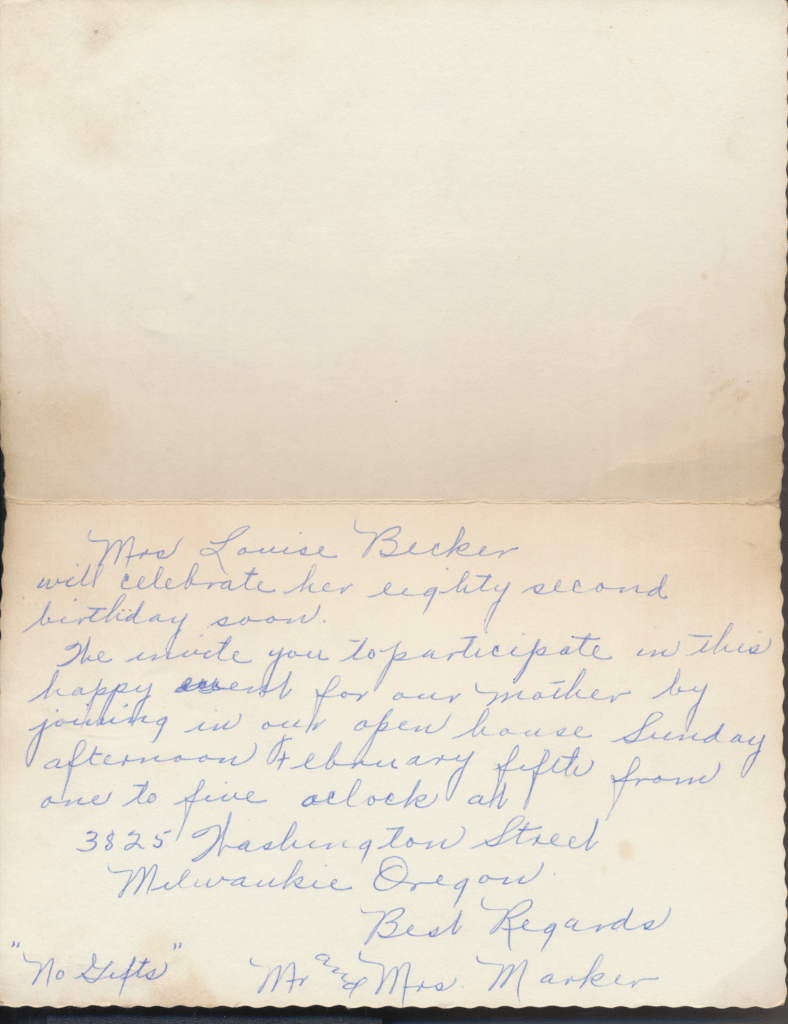 Mrs Louise Becker
will celebrate her eighty second
birthday soon.
We invite you to participate in this
happy event for our mother by
joining in our open house Sunday
afternoon February fifth from
one to five oclock at
3825 Washington Street
Milwaukie Oregon
Best Regards
"No Gifts" Mr and Mrs. Marker